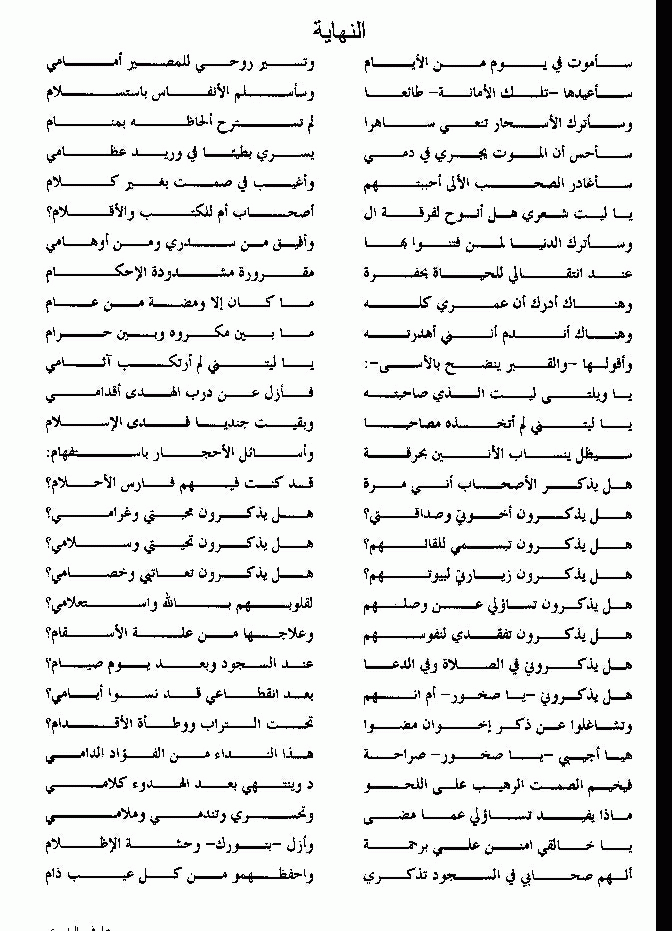 النهاية
سأموت في يوم من الأيام وتسير روحي للمصير أمامي
سأعيدها -تلك الأمانة- طائعا وسأسلم الأنفاس باستسلام
وسأترك الأسحار تنعي ساهرا لم تسترح ألحاظه بمنام
سأحس أن الموت يجري في دمي يسري بطيئا في وريد عظامي
سأغادر الصحب الألى أحببتهم وأغيب في صمت بغير كلام
يا ليت شعري هل أنوح لفرقة ال أصحاب أم للكتب والأقلام؟
وسأترك الدنيا لمن فتنوا بها وأفيق من سدري ومن أوهامي
عند انتقالي للحياة بحفرة مقرورة مشدودة الإحكام
وهناك أدرك أن عمري كله ما كان إلا ومضة من عام
وهناك أندم أنني أهدرته ما بين مكروه وبين حرام
وأقولها -والقبر ينضح بالأسى-: يا ليتني لم أرتكب آثامي
يا ويلتى ليت الذي صاحبته فأزل عن درب الهدى أقدامي
يا ليتني لم أتخذه مصاحبا وبقيت جنديا فدى الإسلام
سيظل ينساب الأنين بحرقة وأسائل الأحجار باستفهام:
هل يذكر الأصحاب أني مرة قد كنت فيهم فارس الأحلام؟
هل يذكرون أخوتي وصداقتي؟ هل يذكرون محبتي وغرامي؟
هل يذكرون تبسمي للقائهم؟ هل يذكرون تحيتي وسلامي؟
هل يذكرون زيارتي لبيوتهم؟ هل يذكرون تعاتبي وخصامي؟
هل يذكرون تساؤلي عن وصلهم لقلوبهم بالله واستعلامي؟
هل يذكرون تفقدي لنفوسهم وعلاجها من علة الأسقام؟
هل يذكروني في الصلاة وفي الدعا عند السجود وبعد يوم صيام؟
هل يذكروني -يا صخور- أم انهم بعد انقطاعي قد نسوا أيامي؟
وتشاغلوا عن ذكر إخوان مضوا تحت التراب ووطأة الأقدام؟
هيا أجيبي -يا صخور- صراحة هذا النداء من الفؤاد الدامي
فيخيم الصمت الرهيب على اللحو د وينتهي بعد الهدوء كلامي
ماذا يفيد تساؤلي عما مضى وتحسري وتندمي وملامي
يا خالقي امنن علي برحمة وأزل -بنورك- وحشة الإظلام
ألهم صحابي في السجود تذكري واحفظهمو من كل عيب ذام